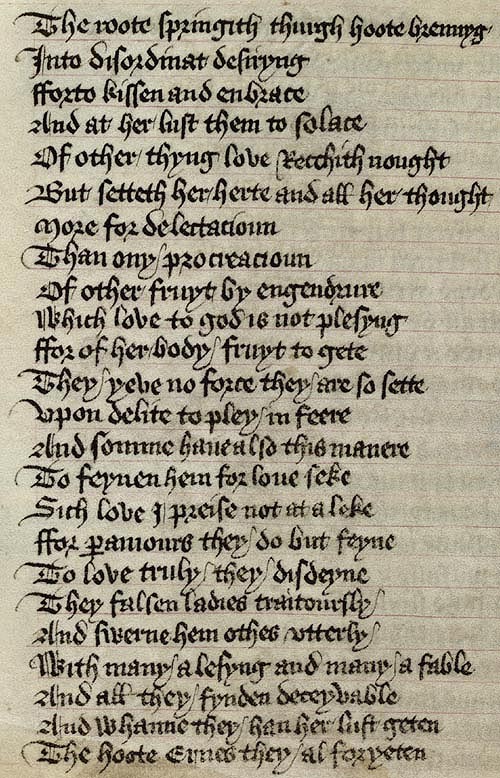 The roote springith thurgh hoote brennyg
Into disordinat desiryng
fforto kissen and enbrace
And at her lust them to solace
Of other thyng love Recchith nought
But setteth her herte and all her thought
More for delectacioun
Than ony procreacioun
Of other fruyt by engendrure
Which love to god is not plesyng
ffor of her body fruyt to gete
They yeve no force they are so sette
Vpon delite to pley in feere
And somme haue also this manere
To feynen hem for loue seke
Sich love I preise not at a leke
ffor paramours they do but feyne
To love truly they disdeyne
They falsen ladies traitoursly
And swerne hem othes vtterly
With many a lesyng and many a fable
And all they fynden deceyvable
And whanne they han her lust geten
The hoote Ernes they al foryeten